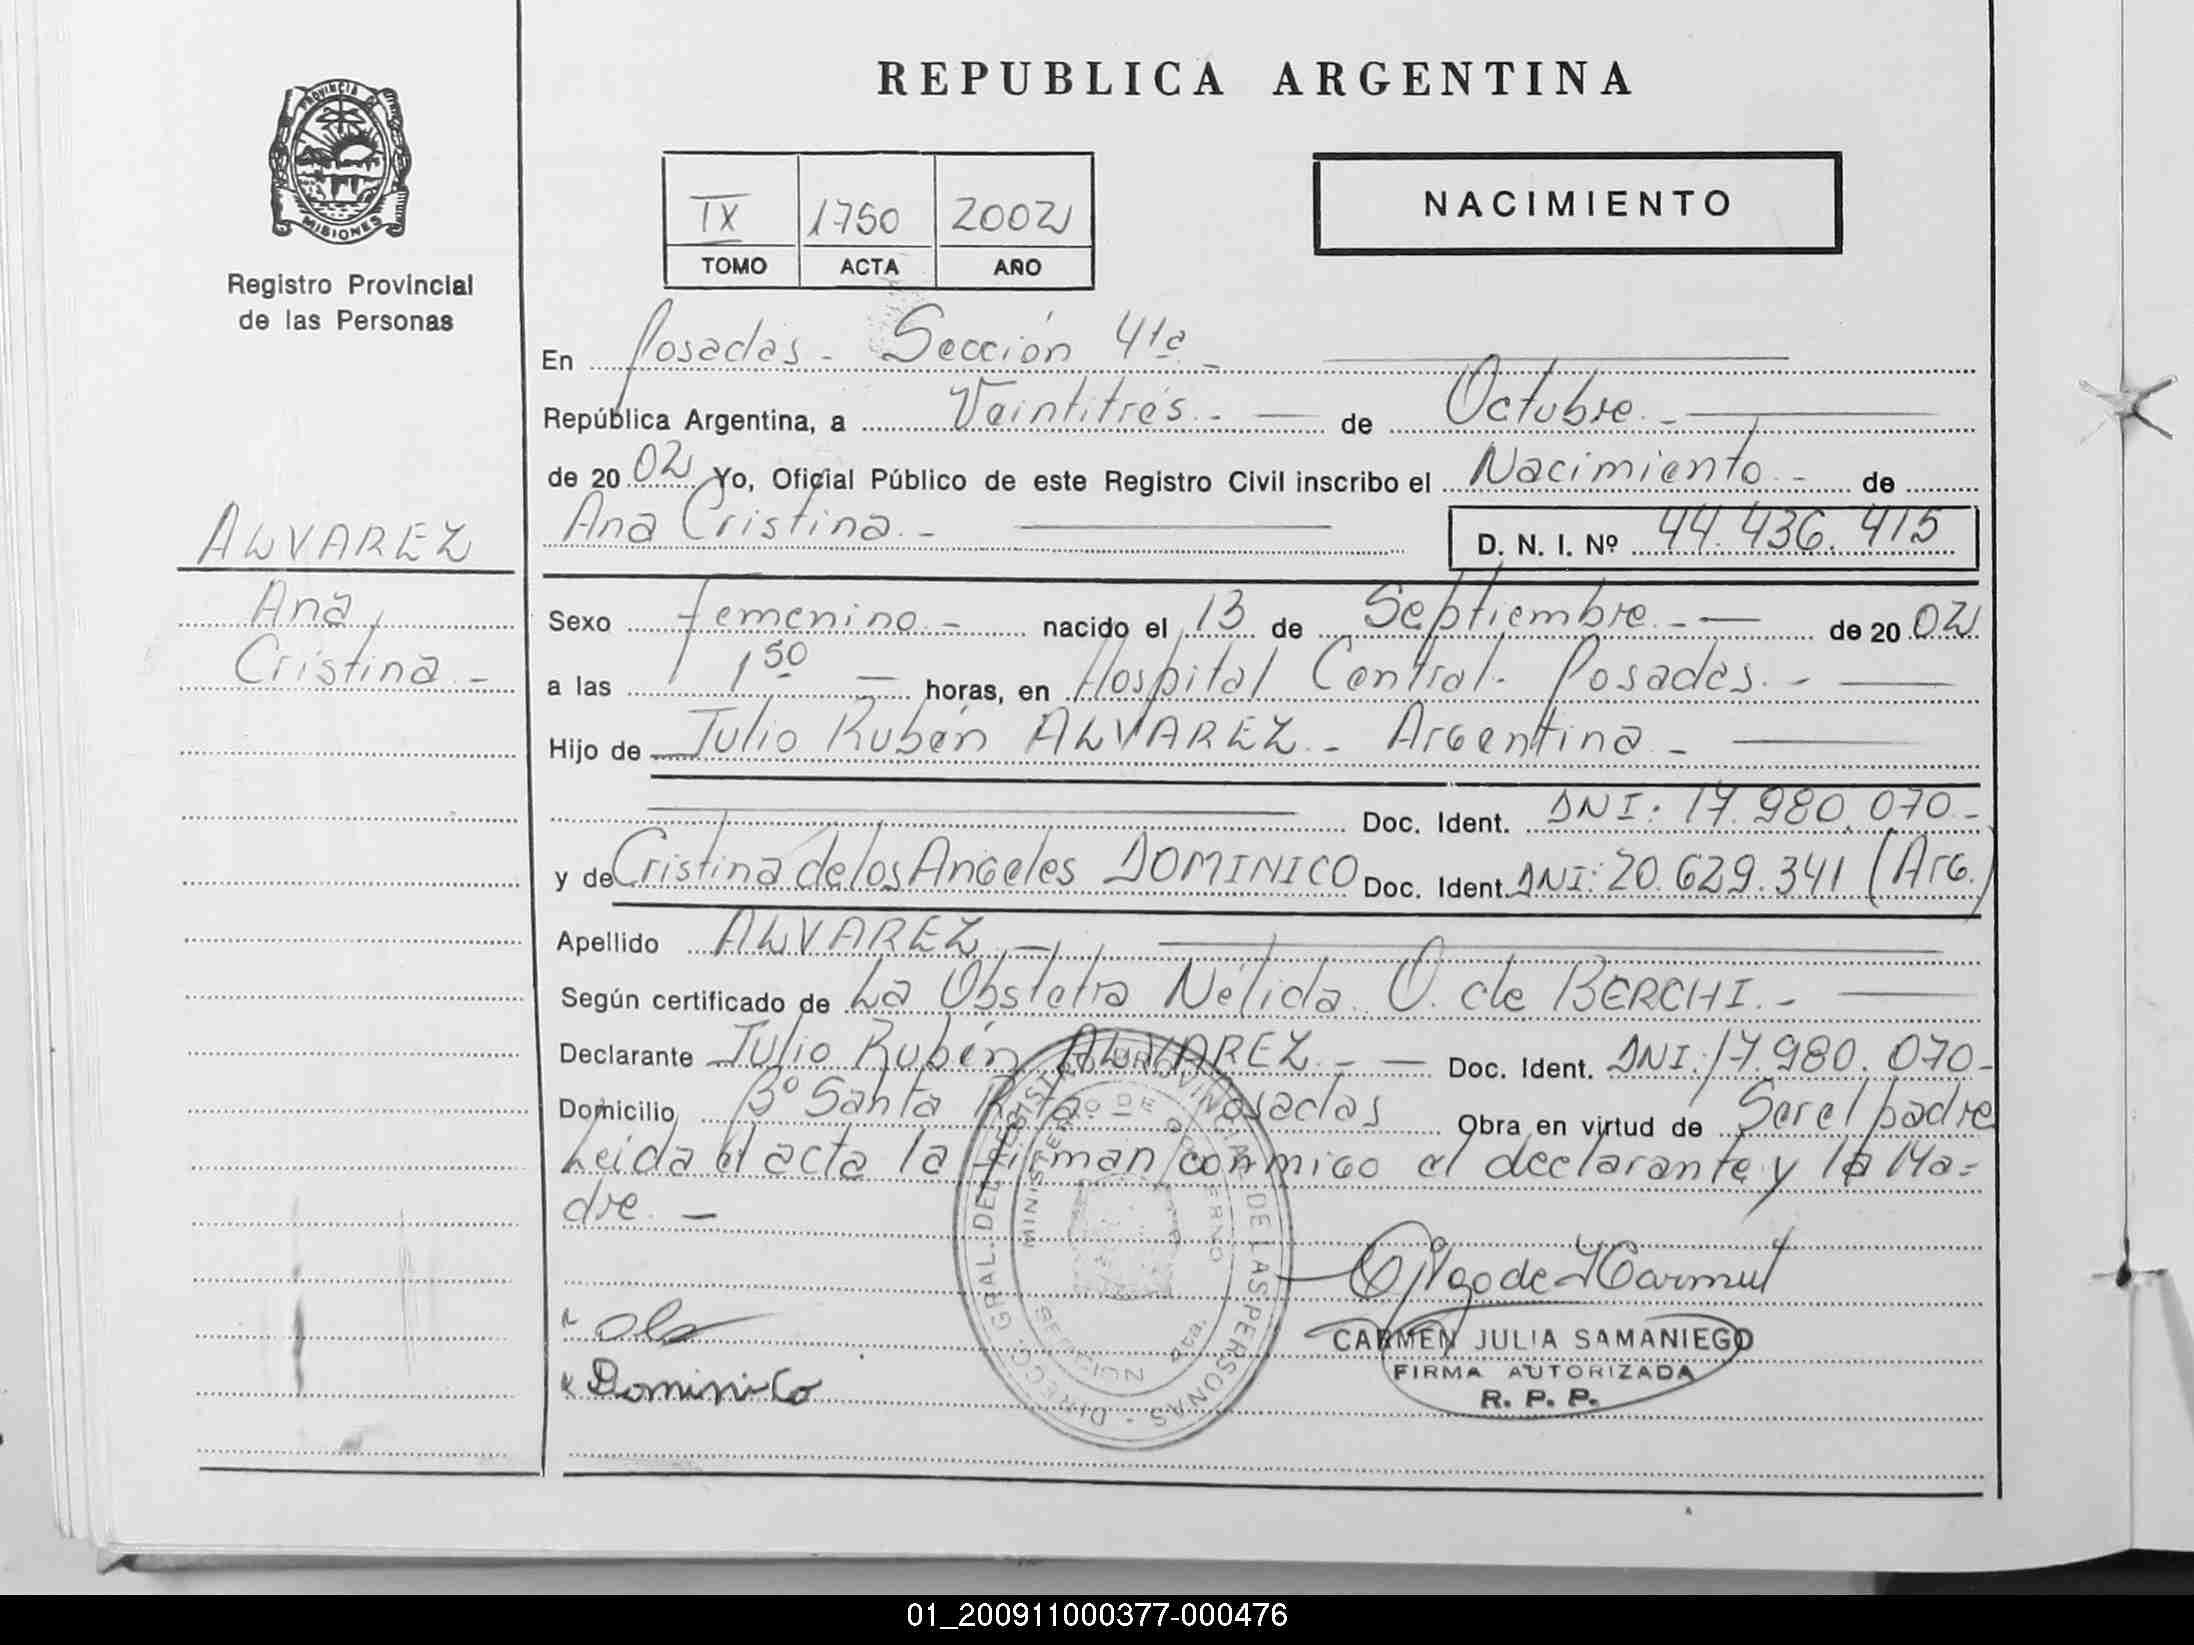 REPUBLICA ARGENTINA
PROVINCIA DE
MISIONES
Registro Provincial
de las Personas
NACIMIENTO
IX 1750 2002
TOMO ACTA AÑO
En Posadas - Sección 41a -
República Argentina, a Veintitrés - de Octubre -
de 20 02 Yo, Oficial Público de este Registro Civil inscribo el Nacimiento - de
Ana Cristina - D. N. I. Nº 44.436.415
ALVAREZ
Ana
Cristina -
Sexo femenino - nacido el 13 de Septiembre - de 20 02
a las 1 50 horas, en Hospital Central - Posadas -
Hijo de Julio Rubén ALVAREZ - Argentina -
Doc. Ident. DNI: 17.980.070 -
y de Cristina de los Angeles DOMINICO Doc. Ident. DNI: 20.629.341 (Arg.)
Apellido ALVAREZ -
Según certificado de La Obstetra Nélida O. de BERCHI -
Declarante Julio Rubén ALVAREZ - Doc. Ident. DNI: 17.980.070 -
Domicilio Bº Santa Rita Posadas Obra en virtud de Ser el padre
Leida el acta la firman conmigo el declarante y la Ma=
dre. -
DIRECC. GRAL. DEL REGISTRO PROVINCIAL DE LAS PERSONAS -
MINISTERIO DE GOBIERNO
SECCION 4ta.
CARMEN JULIA SAMANIEGO
FIRMA AUTORIZADA
R. P. P.
Dominico
01_200911000377-000476